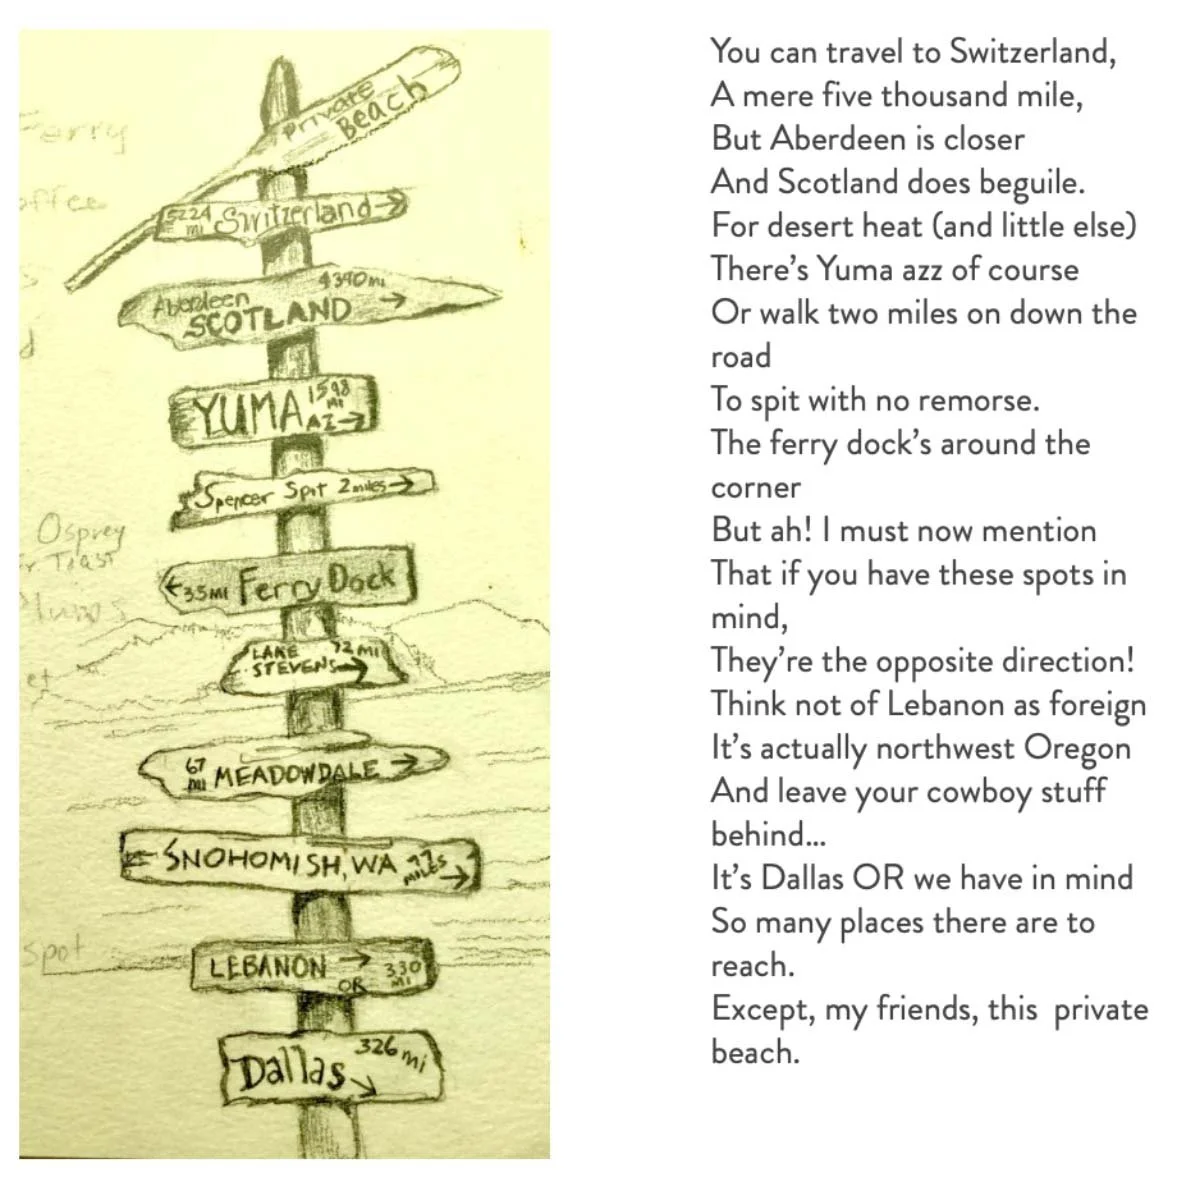 Private
Beach
5224
mi
Switzerland
4390mi
Aberdeen
SCOTLAND
YUMA
1598
MI
AZ
Spencer Spit 2miles
35MI Ferry Dock
LAKE
STEVENS
72 MI
67
mi
MEADOWDALE
SNOHOMISH, WA
MILES
LEBANON
OR
330
MI
Dallas
326 mi
Ferry
offee
Osprey
r Toast
spot
You can travel to Switzerland,
A mere five thousand mile,
But Aberdeen is closer
And Scotland does beguile.
For desert heat (and little else)
There's Yuma azz of course
Or walk two miles on down the
road
To spit with no remorse.
The ferry dock's around the
corner
But ah! I must now mention
That if you have these spots in
mind,
They're the opposite direction!
Think not of Lebanon as foreign
It's actually northwest Oregon
And leave your cowboy stuff
behind...
It's Dallas OR we have in mind
So many places there are to
reach.
Except, my friends, this  private
beach.